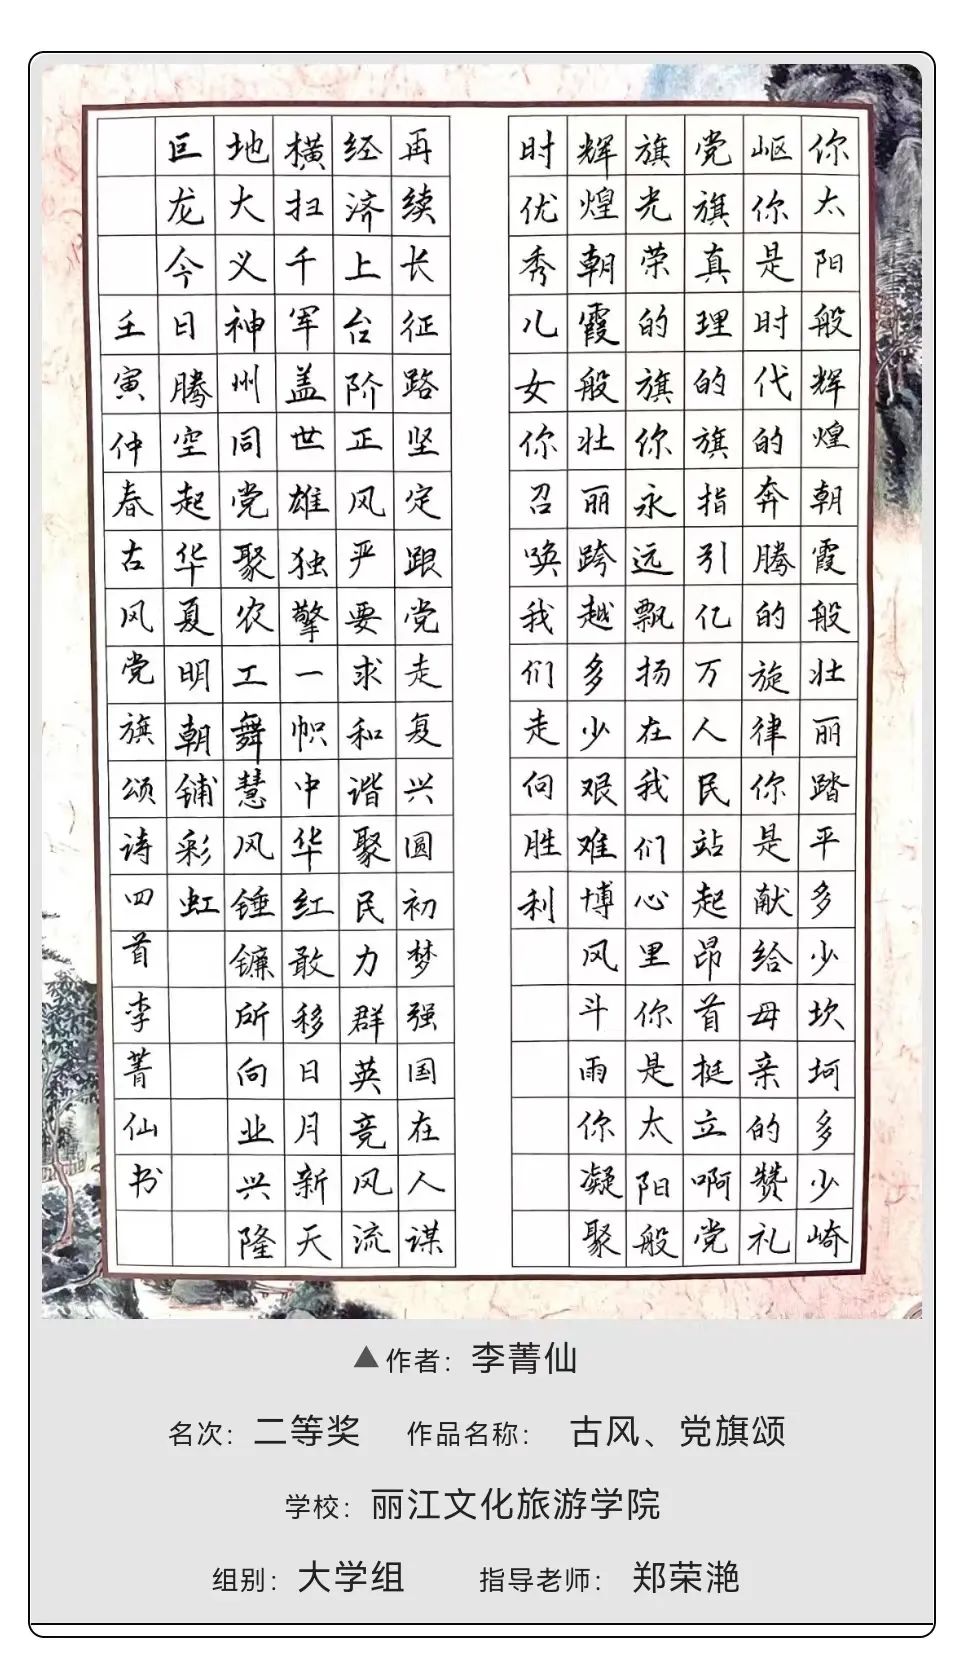 你太阳般辉煌朝霞般壮丽踏平多少坎坷多少崎
岖你是时代的奔腾的旋律你是献给母亲的赞礼
党旗真理的旗指引亿万人民站起昂首挺立啊党
旗光荣的旗你永远飘扬在我们心里你是太阳般
辉煌朝霞般壮丽跨越多少艰难博风斗雨你凝聚
时优秀儿女你召唤我们走向胜利
再续长征路坚定跟党走复兴圆初梦强国在人谋
经济上台阶正风严要求和谐聚民力群英竞风流
横扫千军盖世雄独擎一帜中华红敢移日月新天
地大义神州同党聚农工舞慧风锤镰所向业兴隆
巨龙今日腾空起华夏明朝铺彩虹
壬寅仲春古风党旗颂诗四首李菁仙书
▲作者：李菁仙
名次：二等奖 作品名称： 古风、党旗颂
学校：丽江文化旅游学院
组别：大学组 指导老师： 郑荣滟